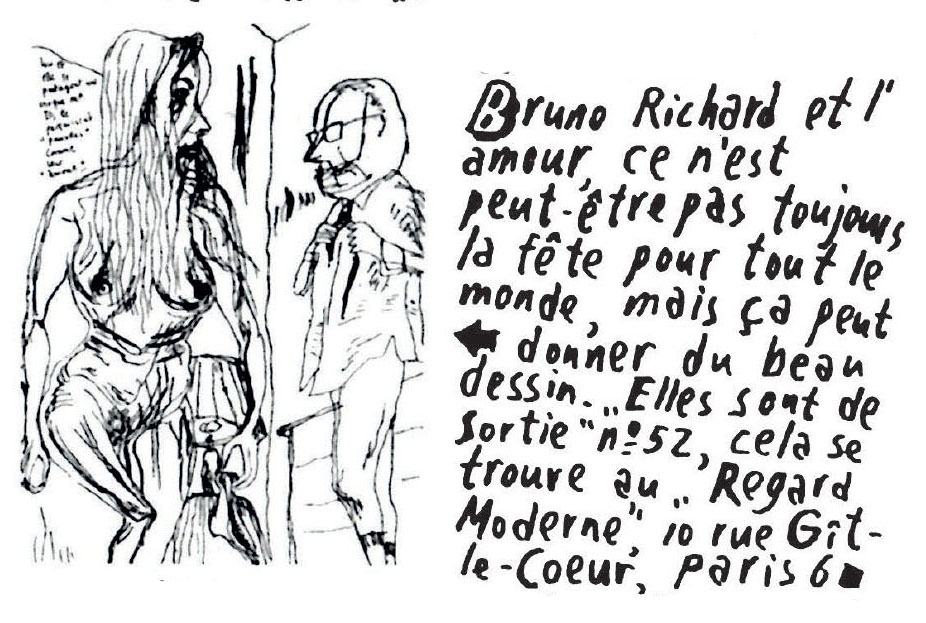 Bruno Richard et l'
amour, ce n'est
peut-être pas toujours
la fête pour tout le
monde, mais ça peut
donner du beau
dessin. „Elles sont de
sortie" nº52, cela se
trouve au „Regard
Moderne", 10 rue Gît-
le-Coeur, Paris 6